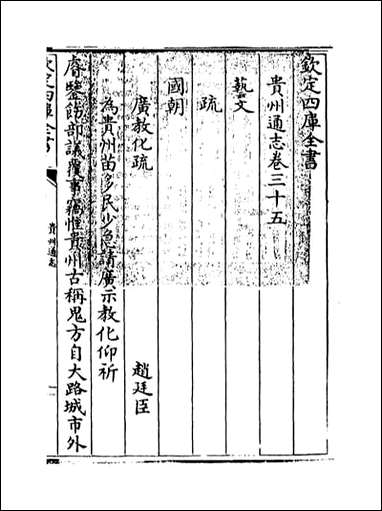 欽定四庫全書
貴州通志卷三十五
藝文
疏
國朝
廣教化疏
趙廷臣
為貴州苗多民少急請廣示教化仰祈
睿鑒飭部議覆事竊惟貴州古稱鬼方自大路城市外
欽定四庫全書
貴州通志